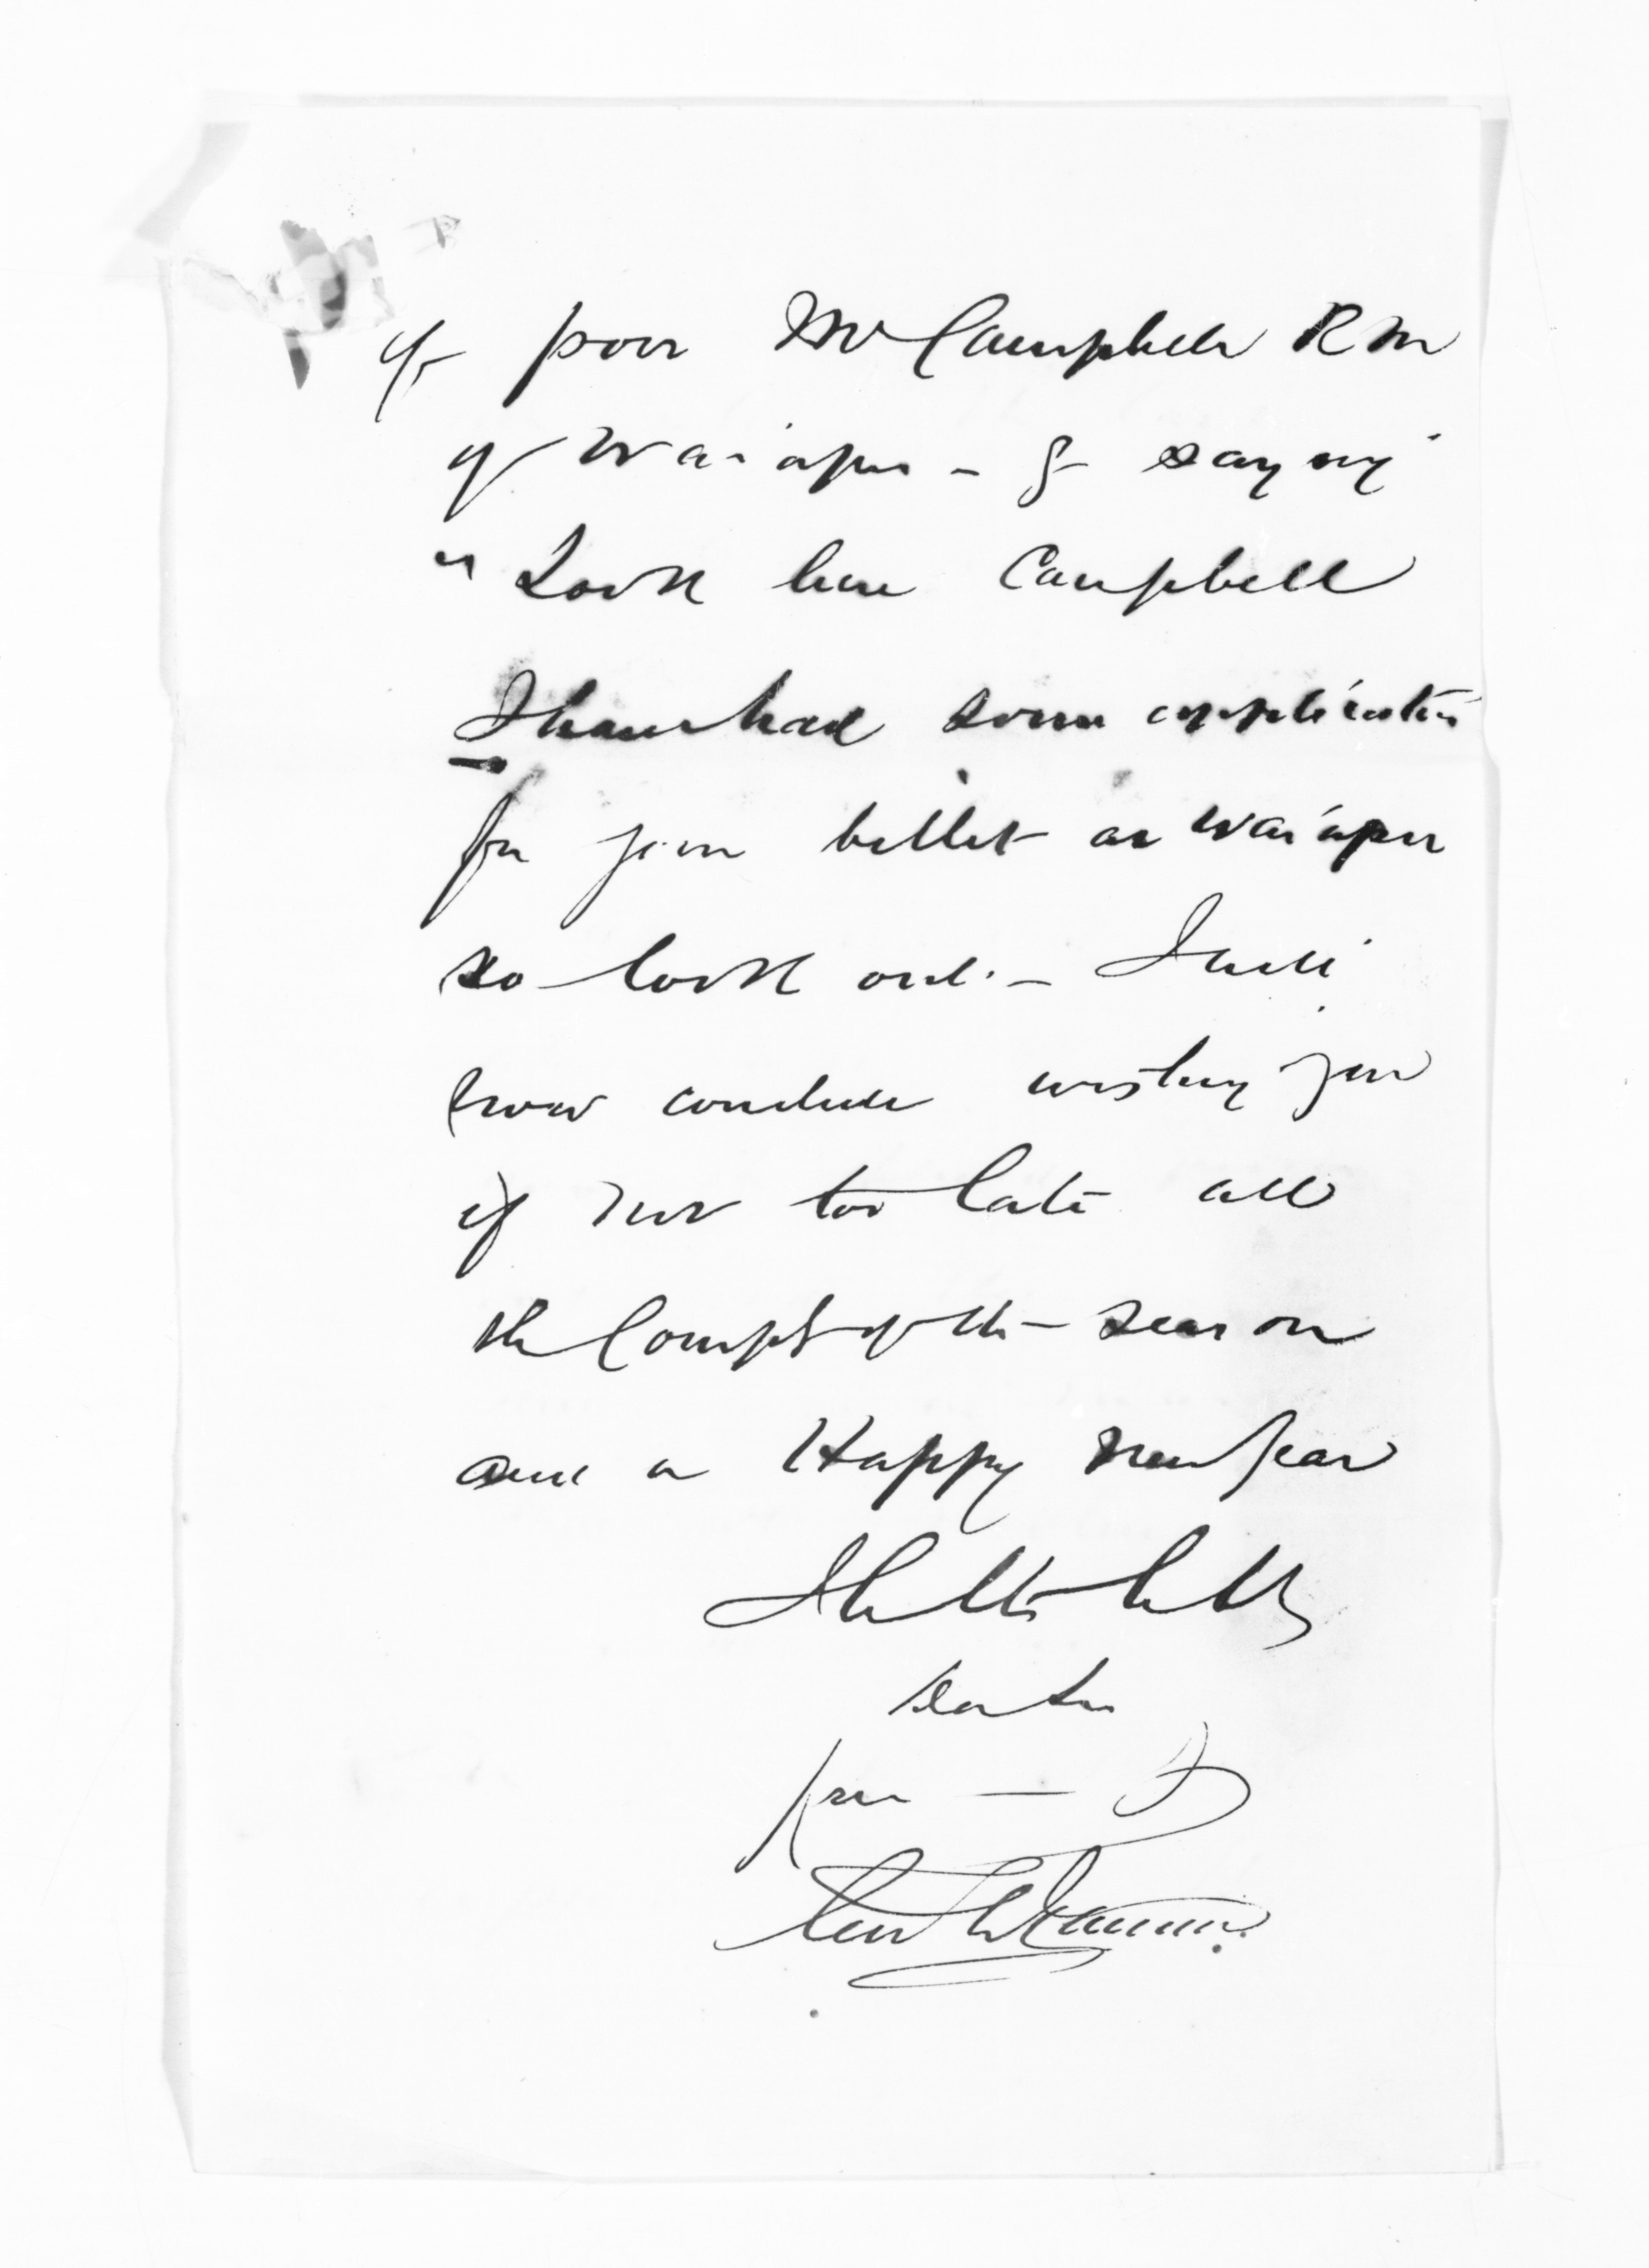 of poor Mr Campbell R M
of Waiapu - & saying
"Look here Campbell
I have had some application
for your billet at Waiapu
so look out. - I will
now conclude wishing you
if not too late all
the Compts of the season
and a Happy New Year